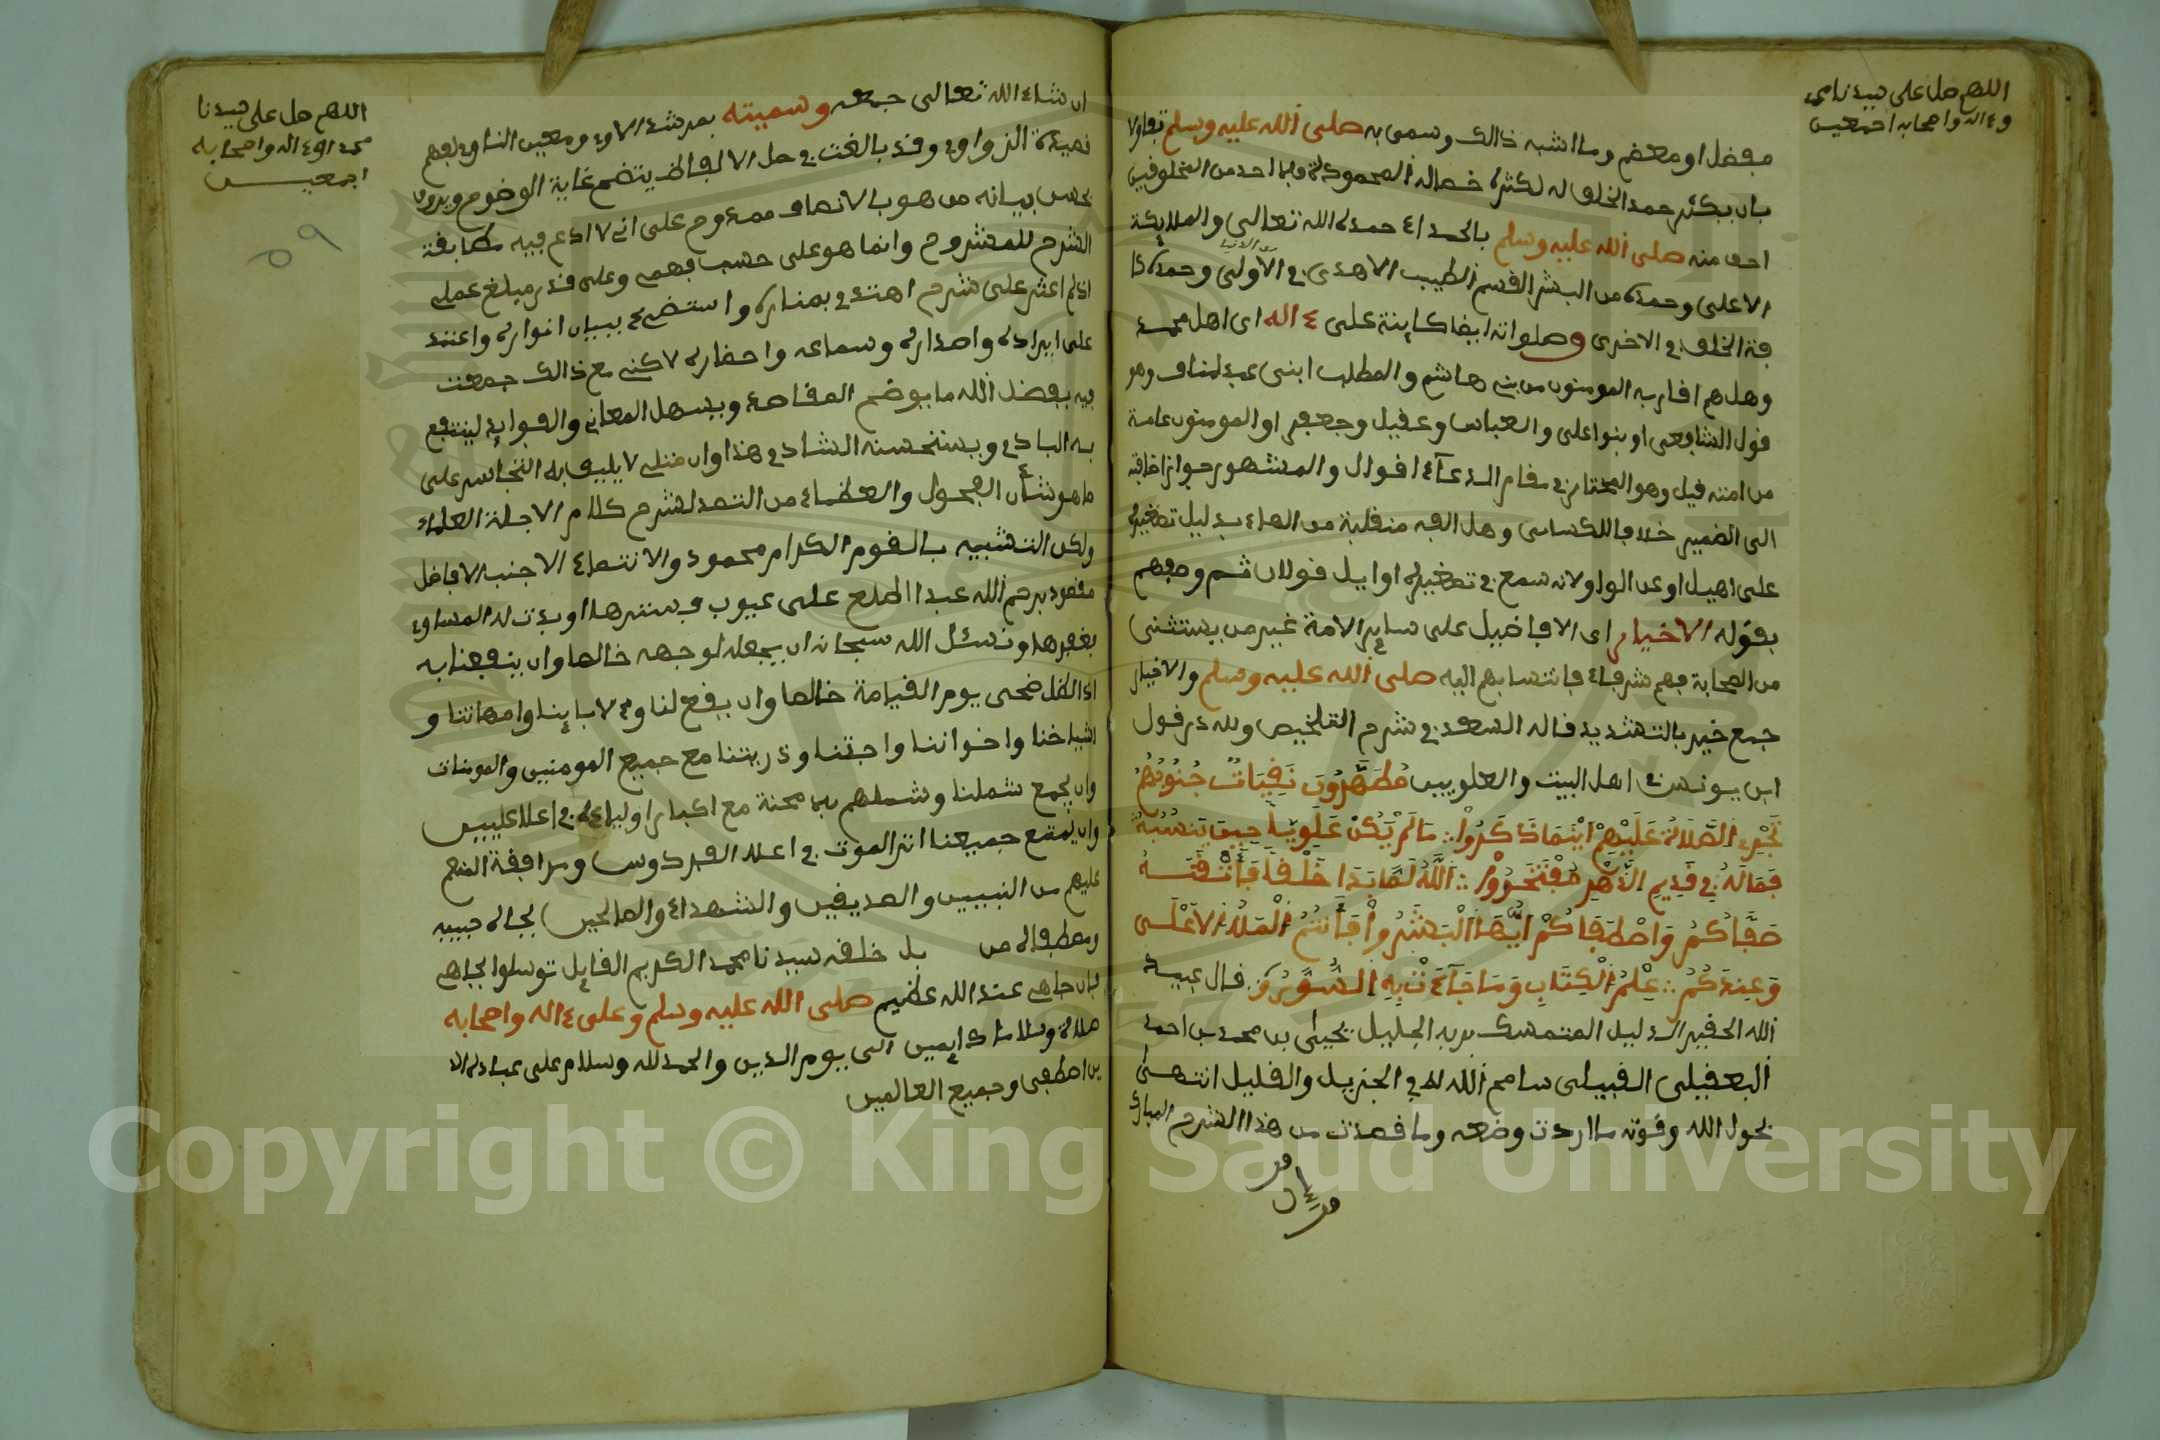 اللهم صل على سيدنا محمد
وءاله واصحابه اجمعين
مفضل او معضم وما اشبه ذالك وسمي به صلى الله عليه وسلم تفاولا
بان يكثر حمد الخلق له لكثرة خصاله المحمودة وما احد من المخلوفين
احق منه صلى الله عليه وسلم بالحمد اذ حمده الله تعالى والملايكة
الاعلى وحمده من البشر القسم الطيب الاهدى في الاولى وحمده كا
فة الخلق في الاخرى وصلواته ايضا كاينة على ءاله اى اهل محمد
وهل هم افاربه المومنون من بني هاشم والمطلب ابنى عبد مناف وهو
قول الشافعى او بنوا على والعباس وعقيل وجعفر او المومنون عامة
من امته قيل وهو المختار في مقام الدعاء اقوال والمشهور جواز اضافته
الى الضمير خلافا للكساسى وهل الفه منقلبة من الهاء بدليل تصغيره
على اهيل او عن الواو لانه سمع في تصغيره اوايل قولان ثم وصفهم
بقوله الاخيار اى الافاضيل على ساير الامة غير من يستثنى
من الصحابة فهم شرفاء فانتسابهم اليه صلى الله عليه وسلم والاخيار
جمع خير بالتشديد قاله السعد في شرح التلخيص ولله در قول
ابن يونس في اهل البيت والعلويين مُطَهَّرُونَ نَقِيَاتٌ جُنُوبُهُمُ
تَجْرِى الصَّلَاةُ عَلَيْهِمْ اَيْنَمَا ذُكِرُوا ∴ مَا لَمْ يَكُنْ عَلَوِيّاً حِينَ تَنسُبُهُ
فَمَا لَهُ فِي قَدِيمِ الدَّهْرِ مُفْتَخَرُوا ∴ اَللَّهُ لَمَّا بَدَا خَلْقاً فَأَتْقَنَهُ
صَفَّاكُمُ وَاصْطَفَاكُمْ اَيُّهَا الْبَشَرُوا فَأَنْتُمُ الْمَلَأُ الاَعْلَى
وَعِندَكُمُ ∴ عِلْمُ الْكِتَابِ وَمَا جَآءَتْ بِهِ السُّوَرُ قال عبيد
الله الحقير الذليل المتمسك بربه الجليل يحيى بن محمد بن احمد
البعقيلى القبيلى سامح الله له في الجزيل والقليل انتهى
بحول الله وقوته ما اردت وضعه وما قصدت من هذا الشرح المبارك
اللهم صل على سيدنا
محمد وءاله واصحابه
اجمعين
٥٩
ان شاء الله تعالى جمعه وسميته بمرشد الاوى ومعين الناوى لفهم
قصيدة الزواوى وقد بالغت في حل الالفاظ يتضح غاية الوضوح ويروى
بحسن بيانه من هو بالانصاف ممدوح على انى لا ادعى فيه مطابقة
الشرح للمشروح وانما هو على حسب فهمى وعلى قدر مبلغ عملى
اذ لم اعثر على شرح اهتدى بمناره واستضىء ببيان انواره واعتند
على ايراده واصداره وسماعه واحضاره لاكنى مع ذالك جمعت
فيه بفضل الله ما يوضح المقاصد ويسهل المعانى والفوايد لينتفع
به البادى ويستحسنه الشادى هذا وان مثلى لا يليق به التجاسر على
ما هو شأن الفحول والعظماء من التصد لشرح كلام الاجلة العلماء
ولكن التشبيه بالقوم الكرام محمود والانتماء الاجنب الافاضل
مقصود يرحم الله عبدا اطلع على عيوب فسترها او بدت له المساوى
بغفرها ونسئل الله سبحانه ان يجعله لوجهه خالصا وان ينفعنا به
اذا الظل ضحى يوم القيامة خالصا وان يقع لنا و لابا ينا وامهاتنا و
اشياخنا واخواننا واحبتنا وذريتنا مع جميع المومنين والمومنات
وان يجمع شملنا وشملهم بلا محنة مع اكبار اولياءه في اعلا عليين
وان يمتع جميعنا اثر الموت في اعلا الفردوس ومرافقة المنعم
عليهم من النبيين والصديقين والشهداء والصالحين بجاه حبيبه
ومصطفاه من بل خلقه سيدنا محمد الكريم القايل توسلوا بجاهى
فان جاهى عند الله عظيم صلى الله عليه وسلم وعلى ءاله واصحابه
صلاة وسلاما دايمين الى يوم الدين والحمد لله وسلام على عباده الذ
ين اصطفى وجميع العالمين
Copyright © King Saud University